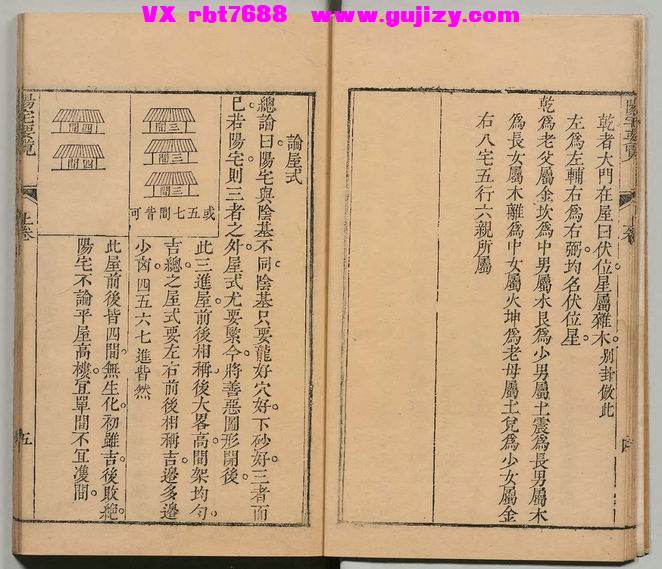 VX rbt7688 www.gujizy.com
乾者大門在屋曰伏位星屬雜木。別卦倣此
左爲左輔右爲右弼均名伏位星。
乾爲老父屬金坎爲中男屬水艮爲少男屬土震爲長男屬木
爲長女屬木離爲中女屬火坤爲老母屬土兌爲少女屬金
右八宅五行六親所屬
論屋式
總論曰陽宅與陰基不同陰基只要龍好穴好下砂好三者而
已若陽宅則三者之外屋式尤要緊今將善惡圖形開後
此三進屋前後相稱後大畧高間架均勻
吉總之屋式要左右前後相稱吉邊多邊
少㐫四五六七進皆然
此屋前後皆四間無生化初雖吉後敗絕
陽宅不論平屋高樓宜單間不宜雙間
三間
三間
三間
或五七間皆可
四間
四間
陽宅要覽
上卷
五